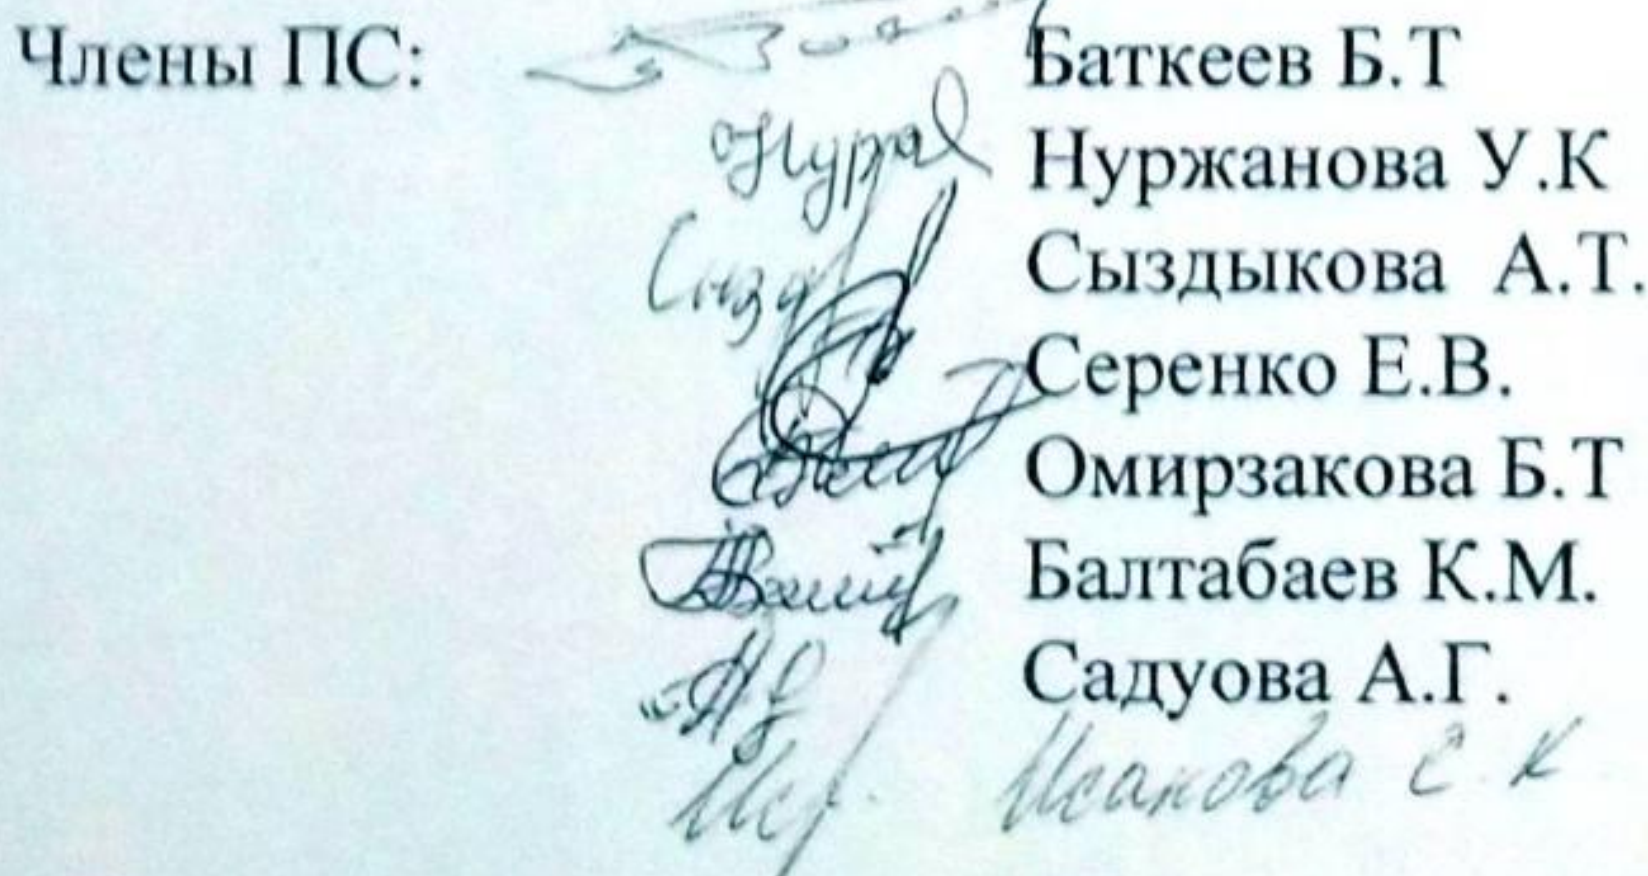 Члены ПС: Баткеев Б.Т
Нуржанова У.К
Сыздыкова А.Т.
Серенко Е.В.
Омирзакова Б.Т
Балтабаев К.М.
Садуова А.Г.
Исанова С.К